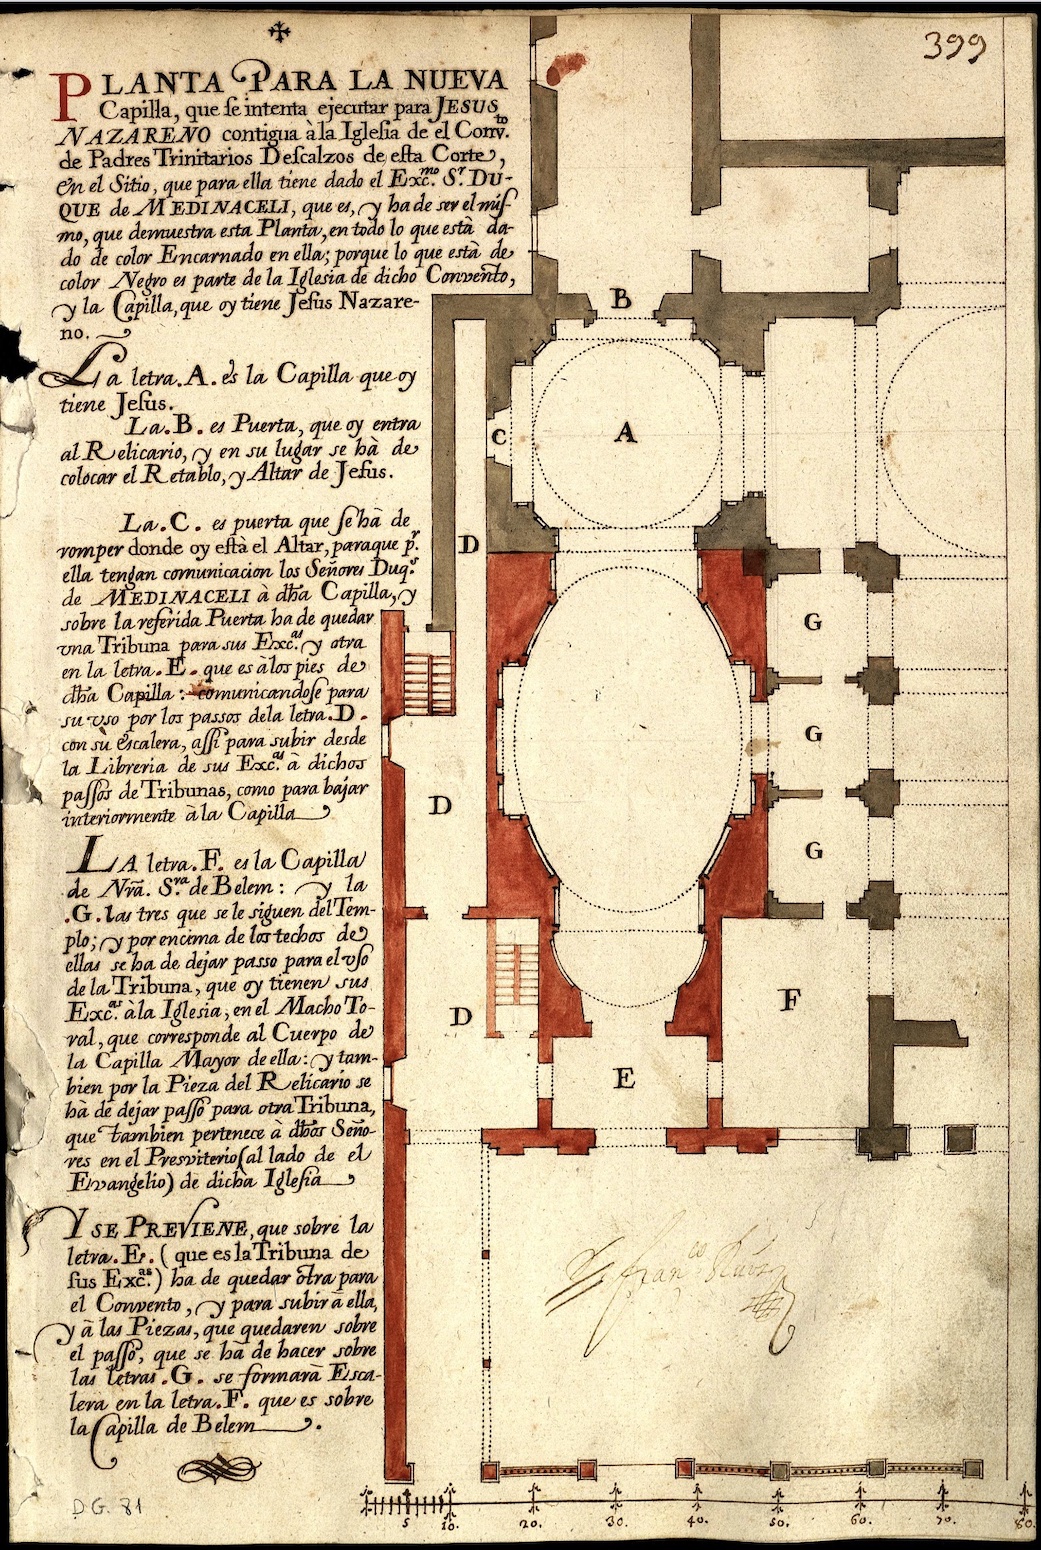 399
PLANTA PARA LA NUEVA
Capilla, que se intenta ejecutar para JESUS
NAZARENO contigua à la Iglesia de el Conv.to
de Padres Trinitarios Descalzos de esta Corte,
en el Sitio, que para ella tiene dado el Exc.mo S.r DU-
QUE de MEDINACELI, que es, y ha de ser el mis-
mo, que demuestra esta Planta, en todo lo que està da-
do de color Encarnado en ella; porque lo que està de
color Negro es parte de la Iglesia de dicho Convento,
y la Capilla, que oy tiene Jesus Nazare-
no.
La letra .A. es la Capilla que oy
tiene Jesus.
La .B. es Puerta, que oy entra
al Relicario, y en su lugar se hà de
colocar el Retablo, y Altar de Jesus.
La .C. es puerta que se hà de
romper donde oy està el Altar, para que p.r
ella tengan comunicacion los Señores Duq.s
de MEDINACELI à dha Capilla, y
sobre la referida Puerta ha de quedar
vna Tribuna para sus Exc.as y otra
en la letra .E. que es à los pies de
dha Capilla: comunicandose para
su vso por los passos de la letra .D.
con sù escalera, assi para subir desde
la Libreria de sus Exc.as à dichos
passos de Tribunas, como para bajar
interiormente à la Capilla
LA letra .F. es la Capilla
de Nrã. S.ra de Belem: y la
.G. las tres que se le siguen del Tem-
plo; y por encima de los techos de
ellas se ha de dejar passo para el vso
de la Tribuna, que oy tienen sus
Exc.as à la Iglesia, en el Macho To-
ral, que corresponde al Cuerpo de
la Capilla Mayor de ella: y tam-
bien por la Pieza del Relicario se
hà de dejar passo para otra Tribuna,
que tambien pertenece à dhos Seño-
res en el Presviterio (al lado de el
Evangelio) de dicha Iglesia
Y SE PREVIENE, que sobre la
letra .E. (que es la Tribuna de
sus Exc.as) ha de quedar otra para
el Convento, y para subir à ella,
y à las Piezas, que quedaren sobre
el passo, que se hà de hacer sobre
las letras .G. se formarà Esca-
lera en la letra .F. que es sobre
la Capilla de Belem.
B
C
A
D
G
G
D
G
F
D
E
D.G. 81
5 10. 20. 30. 40. 50. 60. 70. 80.